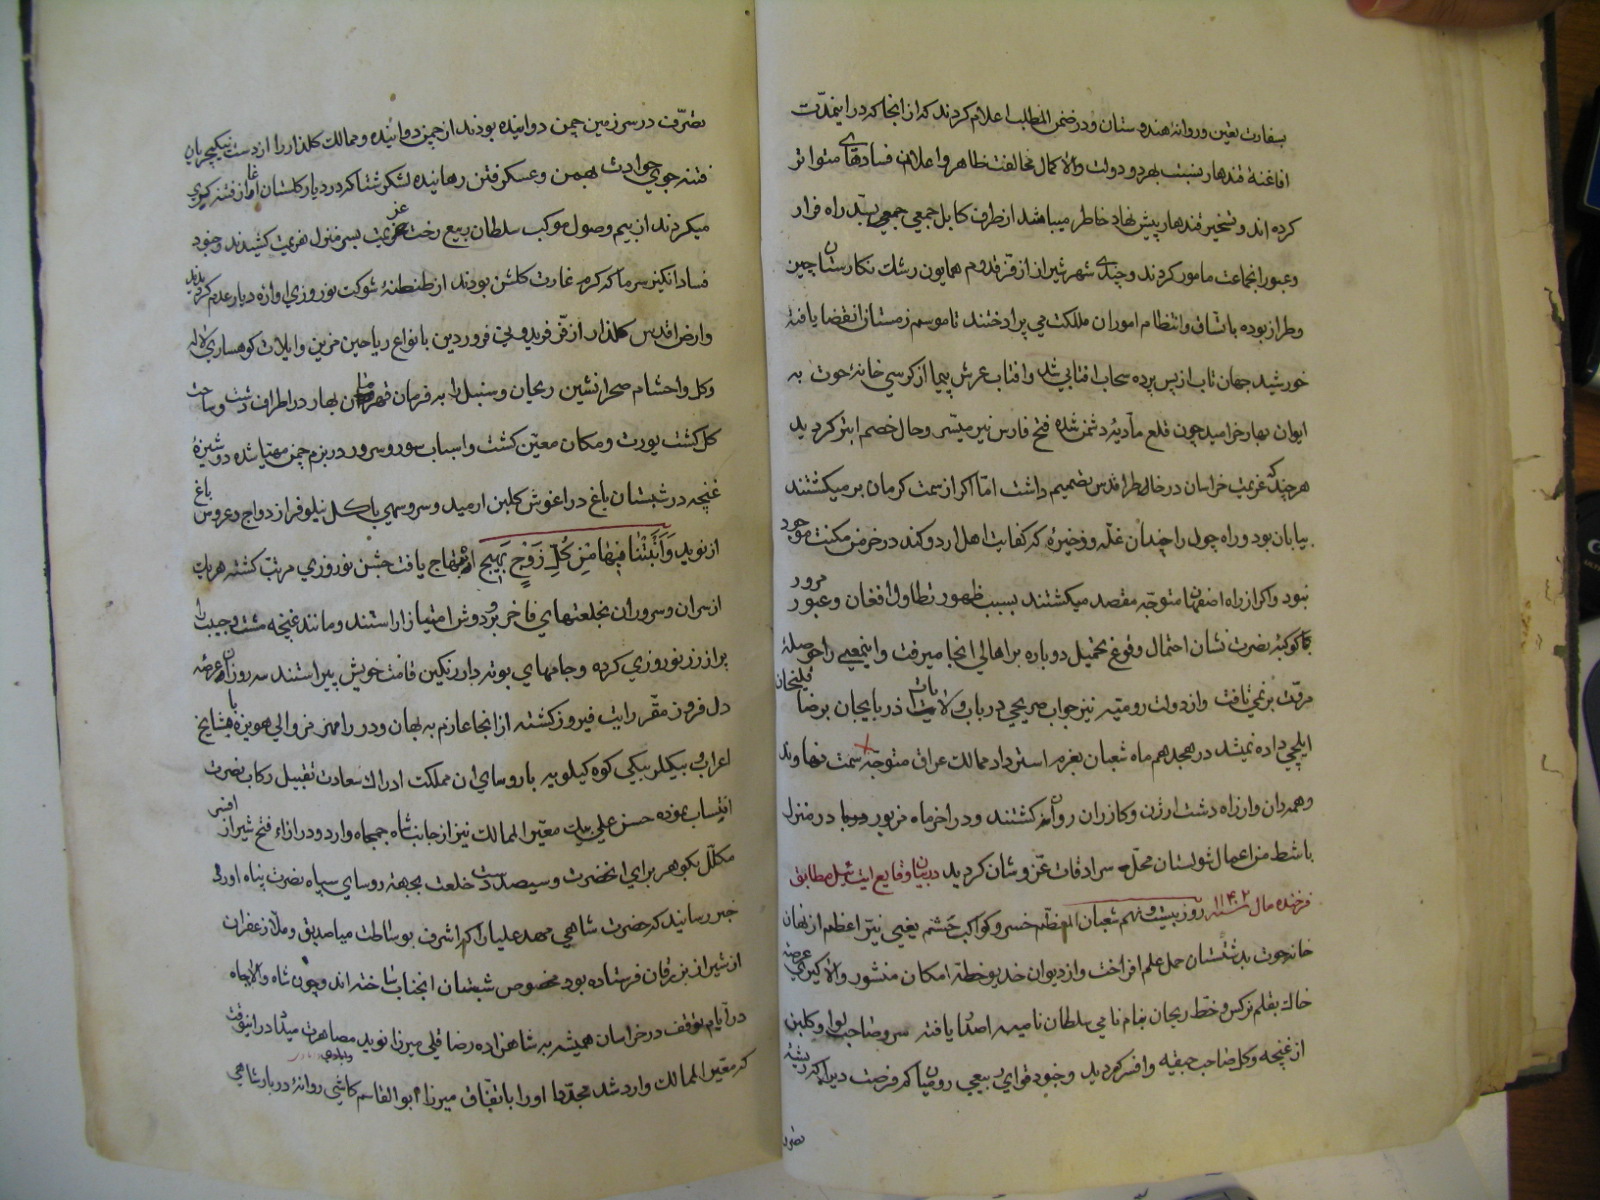 بسفارت تعین و روانهٔ هندوستان و در ضمن المطلب اعلام کردند که از انجا که در اینمدّت
افاغنهٔ قندهار نسبت بهر دو دولت والا کمال مخالفت ظاهر و اعلان فسادهای متواتر
کرده اند و تسخیر قندهار پیش نهاد خاطر میباشد از طرف کابل جمعی جمعی بسدّ راه فرار
و عبور انجماعت مامور کردند و چندی شهر شیراز از فرّ قدوم همایون رشک نکارستان چین
و طراز بوده باتساق و انتظام امور ان مملکت می پرداختند تا موسم زمستان انقضا یافته
خورشید جهان تاب از پس پرده سحاب افتابی شد و افتاب عرش پیما از کرسی خانهٔ حوت به
ایوان بهار خرامید چون قلع مادّهٔ دشمن شده فتح فارس نیز میسّر و حال خصم ابتر کردید
هر چند که عزیمت خراسان در خاطر اقدس تصمیم داشت امّا اکر از سمت کرمان بر میکشتند
بیابان بود و راه چول را چندان غلّه و ذخیرهٔ که کفایت اهل اردو کند در خرمن مکنت موجود
نبود و اکر از راه اصفهان متوجّه مقصد میکشتند بسبب ظهور تطاول افغان و عبور مرور
کوکبهٔ نصرت نشان احتمال وقوع تحمیل دوباره بر اهالی انجا میرفت و اینمعنی را حوصلهٔ
مروّت بر نمی تافت و از دولت رومیّه نیز جواب صریحی در باب ولایات اذربایجان برضا قلیخان
ایلچی داده نمیشد در هجدهم ماه شعبان بعزم استرداد ممالک عراق متوجّه سمت نهاوند
و همدان و از راه دشت ارژن و کازران روانه کشتند و در اخر ماه مزبور در منزل
باشط من اعمال شولستان محلّ سرادقات عزّ و شان کردید در بیان وقایع ایت ئیل مطابق
فرخنده مال سنه ۱۱۴۲ روز بیست و نهم شعبان المعظّم خسرو کواکب حشم یعنی نیّر اعظم از نهان
خانه حوت بدبستان حمل علم افراخت و از دیوان خدیو خطهٔ امکان منشور والا کیری عرصهٔ
خاک بقلم نرکس و خطّ ریحان بنام نامی سلطان نامیه اصدار یافته سرو صاحب لوا و کلبن
از غنچه و کل صاحب جیقه و افسر کردید و جنود قوای ربیعی رومیان کم فرصت دیرا که ریشهٔ
تصرّف
تصرّف در سر زمین چمن دوانیده بودند از چمن دوانیده و ممالک کلذار را از دست ینکیچریان
فتنه جوی حوادث بهمن و عسکر فتن رهانیده لشکر شتا که در دیار کلستان اغاز فتنه کیری
میکردند از بیم وصول موکب سلطان ربیع رخت عزیمت بسر منزل هزیمت کشیدند و جنود
فساد انکیز سرما که کرم غارت کلشن بودند از طنطنهٔ شوکت نوروزی اوازه دیار عدم کردیدند
و ارض اقدس کلذار از فرّ فریدونی فروردین بانواع ریاحین مزین و ایلات کوهساری لاله
و کل و احشام صحرا نشین ریحان و سنبل را به فرمان قهرمان بهار در اطراف دشت و ساحت
کل کشت یورت و مکان معیّن کشت و اسباب سور و سرور در بزم چمن مهیّا شده دوشیزهٔ
غنچه در شبستان باغ در اغوش کلبن ارمید و سرو سهی با کل نیلوفر ازدواج و عروس باغ
از نوید وَاَنْبَتْنا فیها مِنْ کُلِّ زَوْجٍ بَهیج ابتهاج یافت جشن نوروزی مرتب کشته هر یک
از سران و سروران بخلعتهای فاخر بر و دوش امتیاز اراستند و مانند غنچه مشت و جیب را
پر از زر نوروزی کرده و جامهای بوته دار رنکین قامت خویش پیراستند سه روز ان عرصه
دل فروز مقرّ رایت فیروز کشته از انجا عازم بهبهان و در رامهرمز والی هویزه با مشایخ
اعراب و بیکلربیکی کوه کیلویه با روسای ان مملکت ادراک سعادت تقبیل رکاب نصرت
انتساب نموده حسن علی بیک معیّر الممالک نیز از جانب شاه جمجاه وارد و در ازاء فتح شیراز افسر
مکلّل بکوهر برای انحضرت و سیصد دست خلعت بجههٔ روسای سپاه نصرت پناه اورد
خبر رسانید که حضرت شاهی مهد علیا را که اشرف بوساطت میاصدیق و ملّا زعفران
از شیراز بزرقان فرستاده بود مخصوص شبستان انجناب ساخته اند و چون شاه والاجاه
در ایّام توقف در خراسان همیشه بشاهزاده رضا قلی میرزا نوید مصاهرت میداد در اینوقت
که معیّر الممالک وارد شد مجدّدا او را باتفّاق میرزا ابوالقاسم کاشی روانهٔ دربار شاهی